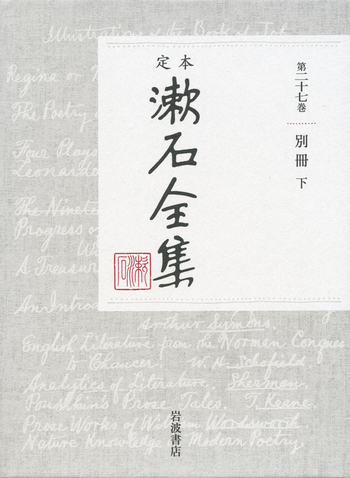 Illustrations of the Book of Job
Regina
The Poetry
Four Plays
Leonardo
The Nineteen
Progress of
A Treasur
An Intro
Arthur Symons.
English Literature from the Norman Conques
to Chaucer. W. H. Schofield
Analytics of Literature. Sherman.
Poushkin's Prose Tales. T. Keane.
Prose Works of William Wordsworth
Nature Knowledge in Modern Poetry.
定本
漱石全集
漱石
第二十七巻
別冊 下
岩波書店